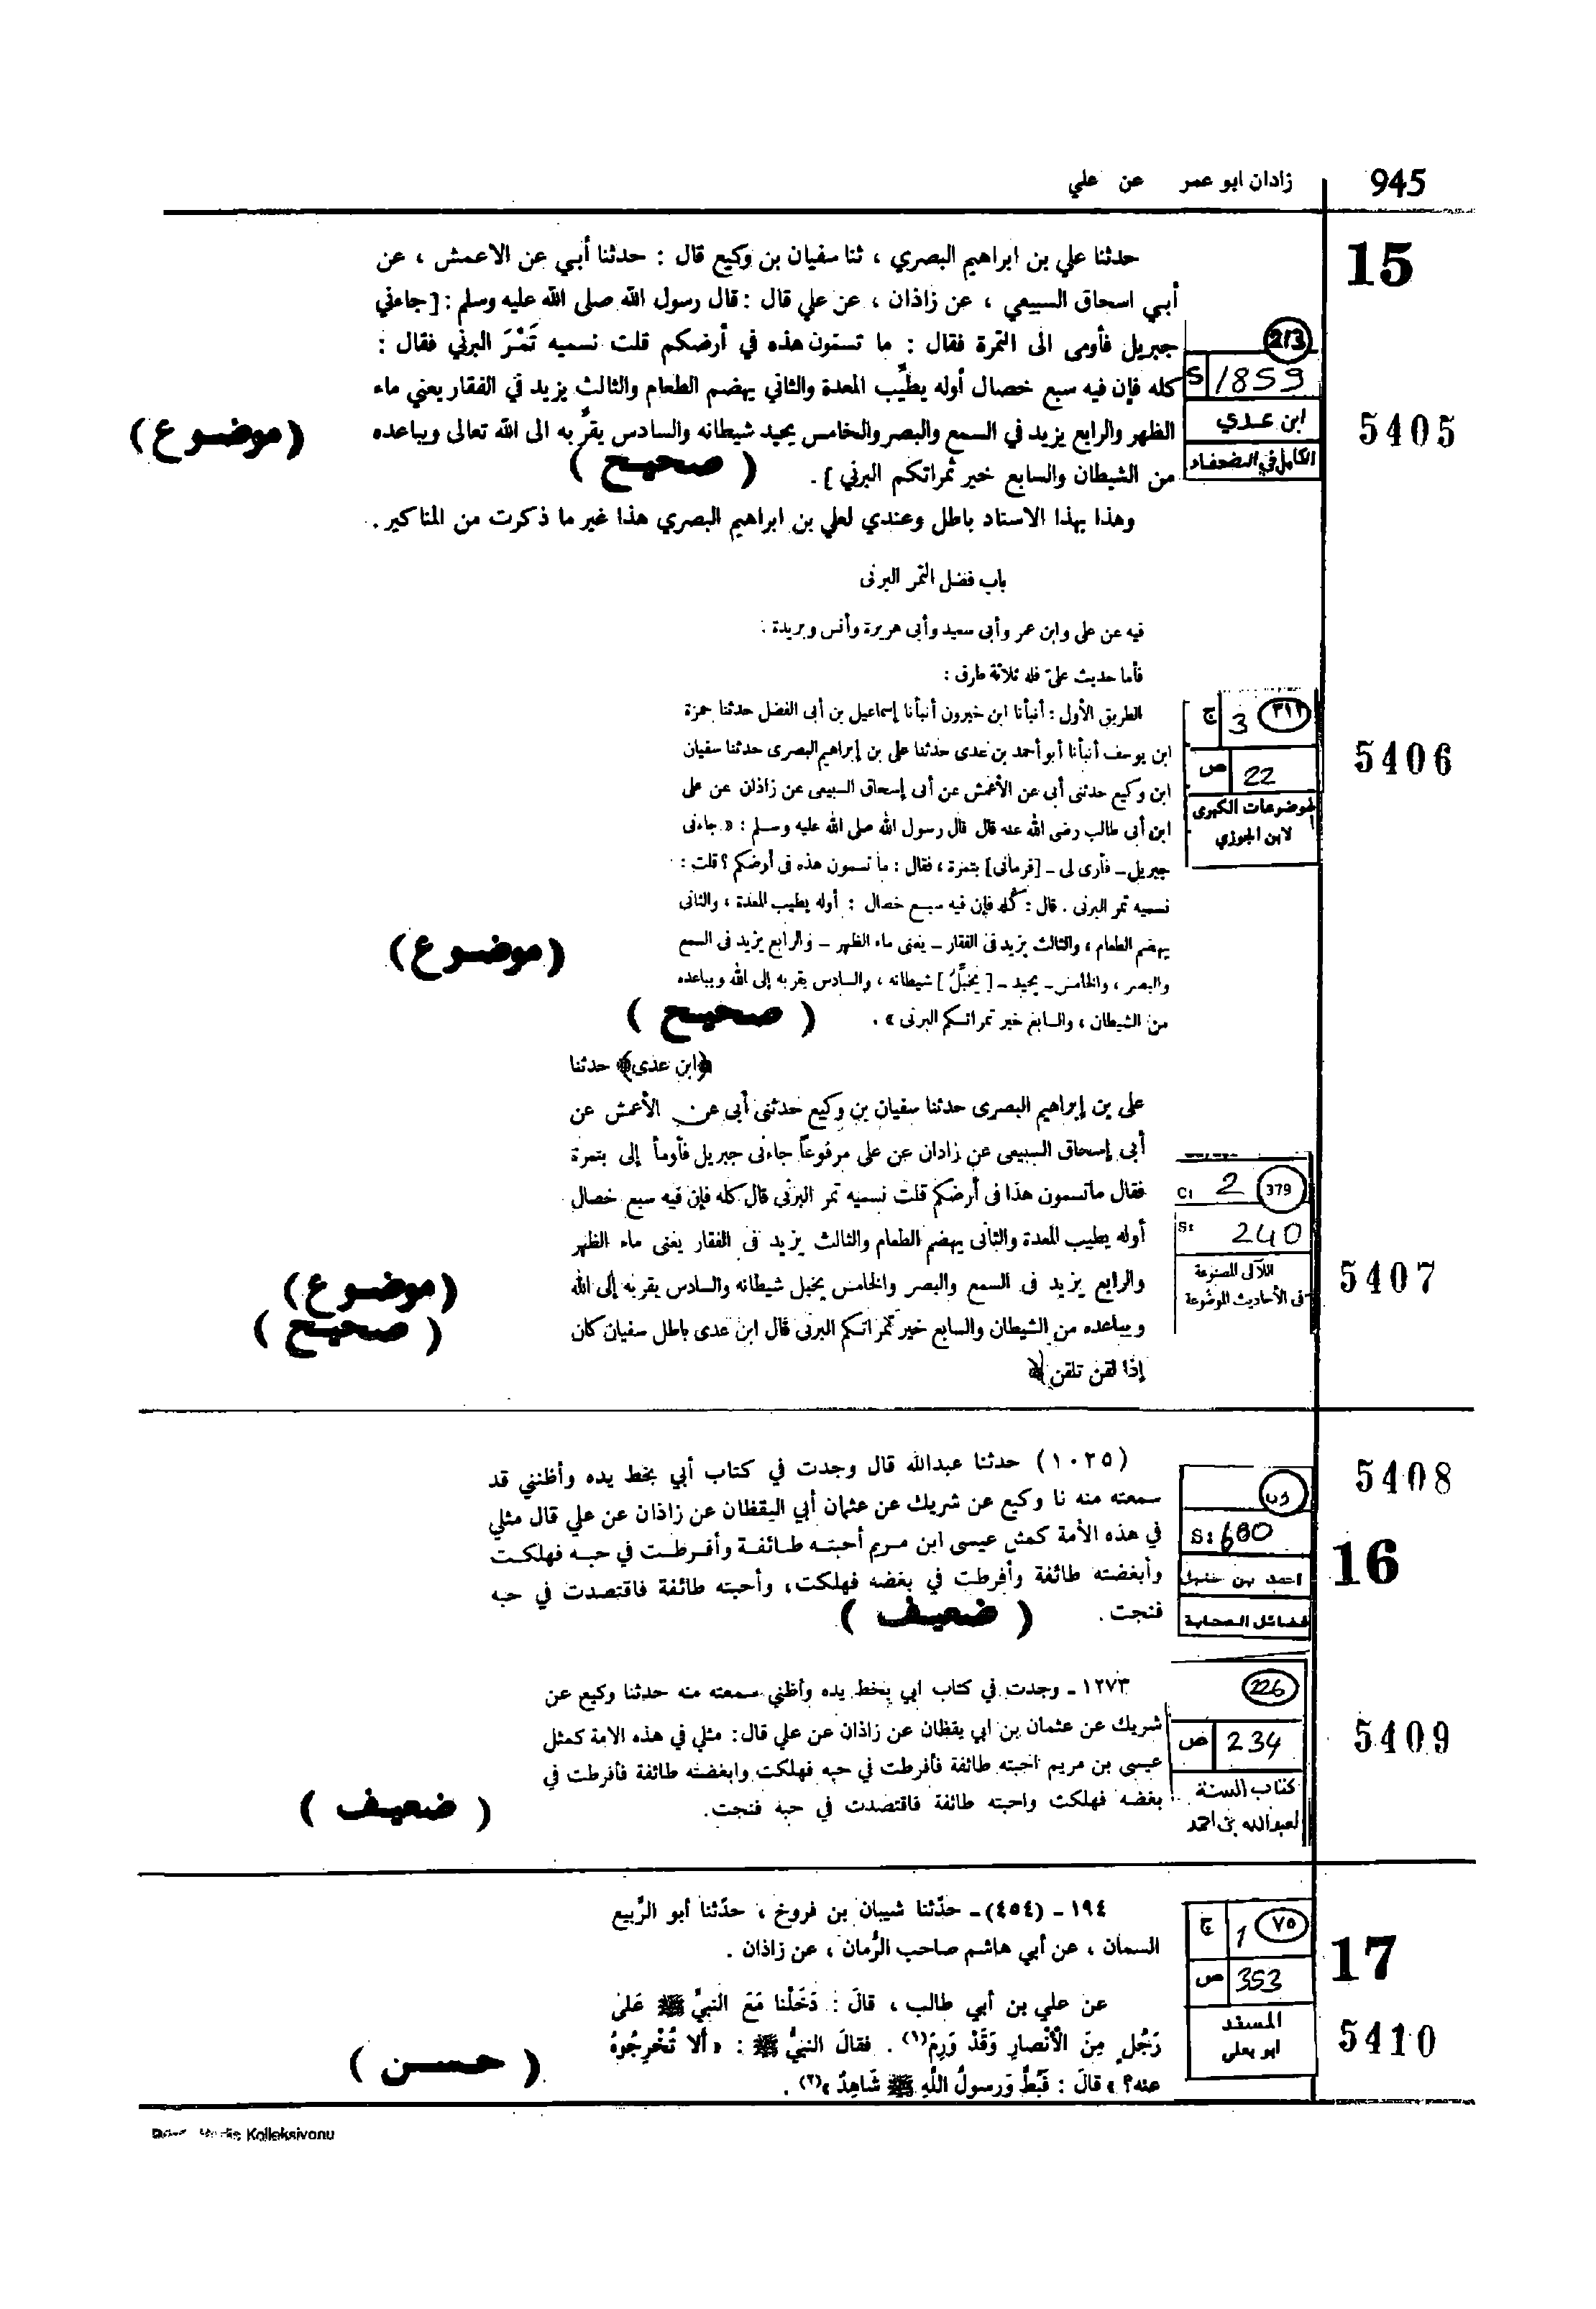 945
زادان ابو عمر عن علي
15
حدثنا علي بن ابراهيم البصري ، ثنا سفيان بن وكيع قال : حدثنا أبي عن الاعمش ، عن
أبي اسحاق السبيعي ، عن زاذان ، عن علي قال : قال رسول الله صلى الله عليه وسلم : [ جاءني
جبريل فأومى الى التمرة فقال : ما تسمون هذه في أرضكم قلت نسميه تَمْرَ البرني فقال :
كله فإن فيه سبع خصال أوله يطيِّب المعدة والثاني يهضم الطعام والثالث يزيد في الفقار يعني ماء
الظهر والرابع يزيد في السمع والبصر والخامس يحيد شيطانه والسادس يقرِّبه الى الله تعالى ويباعده
من الشيطان والسابع خير ثمراتكم البرني ] .
(موضوع)
( صحيح )
213
S 1859
ابن عدي
الكامل في الضعفاء
5405
وهذا بهذا الاسناد باطل وعندي لعلي بن ابراهيم البصري هذا غير ما ذكرت من المناكير .
باب فضل التمر البرنى
فيه عن على وابن عمر وأبى سعيد وأبى هريرة وأنس وبريدة :
فأما حديث علىّ فله ثلاثة طرق :
الطريق الأول : أنبأنا ابن خيرون أنبأنا إسماعيل بن أبى الفضل حدثنا حمزة
ابن يوسف أنبأنا أبو أحمد بن عدى حدثنا على بن إبراهيم البصرى حدثنا سفيان
ابن وكيع حدثنى أبى عن الأعمش عن أبى إسحاق السبيعى عن زاذان عن على
ابن أبى طالب رضى الله عنه قال قال رسول الله صلى الله عليه وسلم : « جاءنى
جبريل ـ فأرى لى ـ [فرمانى] بتمرة ، فقال : ما تسمون هذه فى أرضكم ؟ قلت :
نسميه تمر البرنى . قال : كُله فإن فيه سبع خصال : أوله يطيب المعدة ، والثانى
يهضم الطعام ، والثالث يزيد فى الفقار ـ يعنى ماء الظهر ـ والرابع يزيد فى السمع
والبصر ، والخامس ـ يحيد ـ [ يخبِّلُ ] شيطانه ، والسادس يقربه إلى الله ويباعده
من الشيطان ، والسابع خير تمراتكم البرنى » .
(موضوع)
( صحيح )
ج 3
ص 22
الموضوعات الكبرى
لابن الجوزي
5406
﴿ابن عدى﴾ حدثنا
على بن إبراهيم البصرى حدثنا سفيان بن وكيع حدثنى أبى عن الأعمش عن
أبى إسحاق السبيعى عن زادان عن على مرفوعاً جاءنى جبريل فأومأ إلى بتمرة
فقال ماتسمون هذا فى أرضكم قلت نسميه تمر البرنى قال كله فإن فيه سبع خصال
أوله يطيب المعدة والثانى يهضم الطعام والثالث يزيد فى الفقار يعنى ماء الظهر
والرابع يزيد فى السمع والبصر والخامس يخبل شيطانه والسادس يقربه إلى الله
ويباعده من الشيطان والسابع خير تمراتكم البرنى قال ابن عدى باطل سفيان كان
إذا لقن تلقن
(موضوع)
( صحيح )
C: 2 379
S: 240
اللآلى المصنوعة
فى الأحاديث الموضوعة
5407
(١٠٢٥) حدثنا عبدالله قال وجدت في كتاب أبي بخط يده وأظنني قد
سمعته منه نا وكيع عن شريك عن عثمان أبي اليقظان عن زاذان عن علي قال مثلي
في هذه الأمة كمثل عيسى ابن مريم أحبته طائفة وأفرطت في حبه فهلكت
وأبغضته طائفة وأفرطت في بغضه فهلكت، وأحبته طائفة فاقتصدت في حبه
فنجت .
( ضعيف )
S: 600
احمد بن حنبل
فضائل الصحابة
5408
16
١٢٧٣ ـ وجدت في كتاب ابي بخط يده وأظني سمعته منه حدثنا وكيع عن
شريك عن عثمان بن ابي يقظان عن زاذان عن علي قال: مثلي في هذه الامة كمثل
عيسى بن مريم احبته طائفة فأفرطت في حبه فهلكت وابغضته طائفة فأفرطت في
بغضه فهلكت واحبته طائفة فاقتصدت في حبه فنجت.
( ضعيف )
226
ص 234
كتاب السنة
لعبدالله بن احمد
5409
١٩٤ ـ (٤٥٤) ـ حدّثنا شيبان بن فروخ ، حدّثنا أبو الرَّبيع
السمان ، عن أبي هاشم صاحب الرُّمان ، عن زاذان .
عن علي بن أبي طالب ، قالَ : دَخَلْنا مَعَ النبيِّ ﷺ عَلىٰ
رَجُلٍ مِنَ الأَنْصارِ وَقَدْ وَرِمَ(١) . فقالَ النبيُّ ﷺ : « أَلا تُخْرِجُوهُ
عنه؟ » قالَ : فَبُطَّ وَرسولُ اللَّهِ ﷺ شَاهِدٌ »(٢) .
( حسن )
ج 1 ٧٥
ص 353
المسند
ابو يعلى
17
5410
Kolleksiyonu